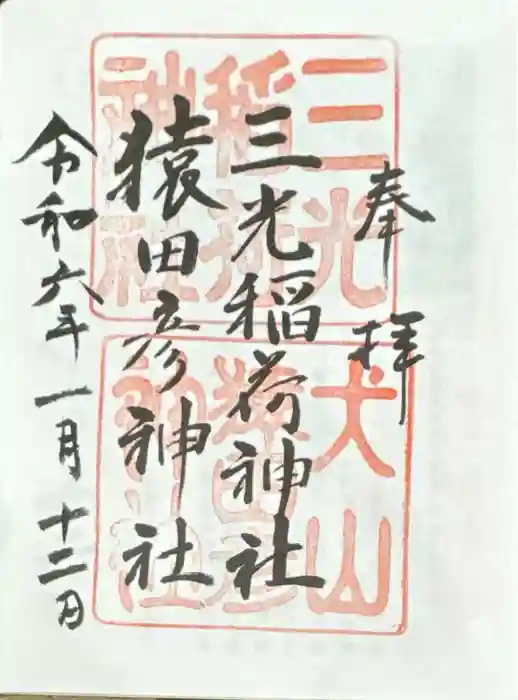 奉拝
三光稲荷神社
猿田彦神社
令和六年一月十二日
三光
稲荷
神社
犬山
猿田彦
神社